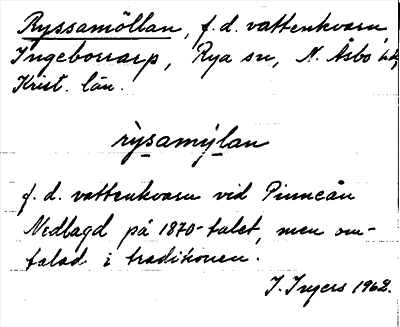 Ryssamöllan, f.d. vattenkvarn,
Ingeborrarp, Rya sn, N. Åsbo hd,
Krist. län.
rỳsamýlan
f.d. vattenkvarn vid Pinneån
Nedlagd på 1870-talet, men om-
talad i traditionen.
I. Ingers 1962.